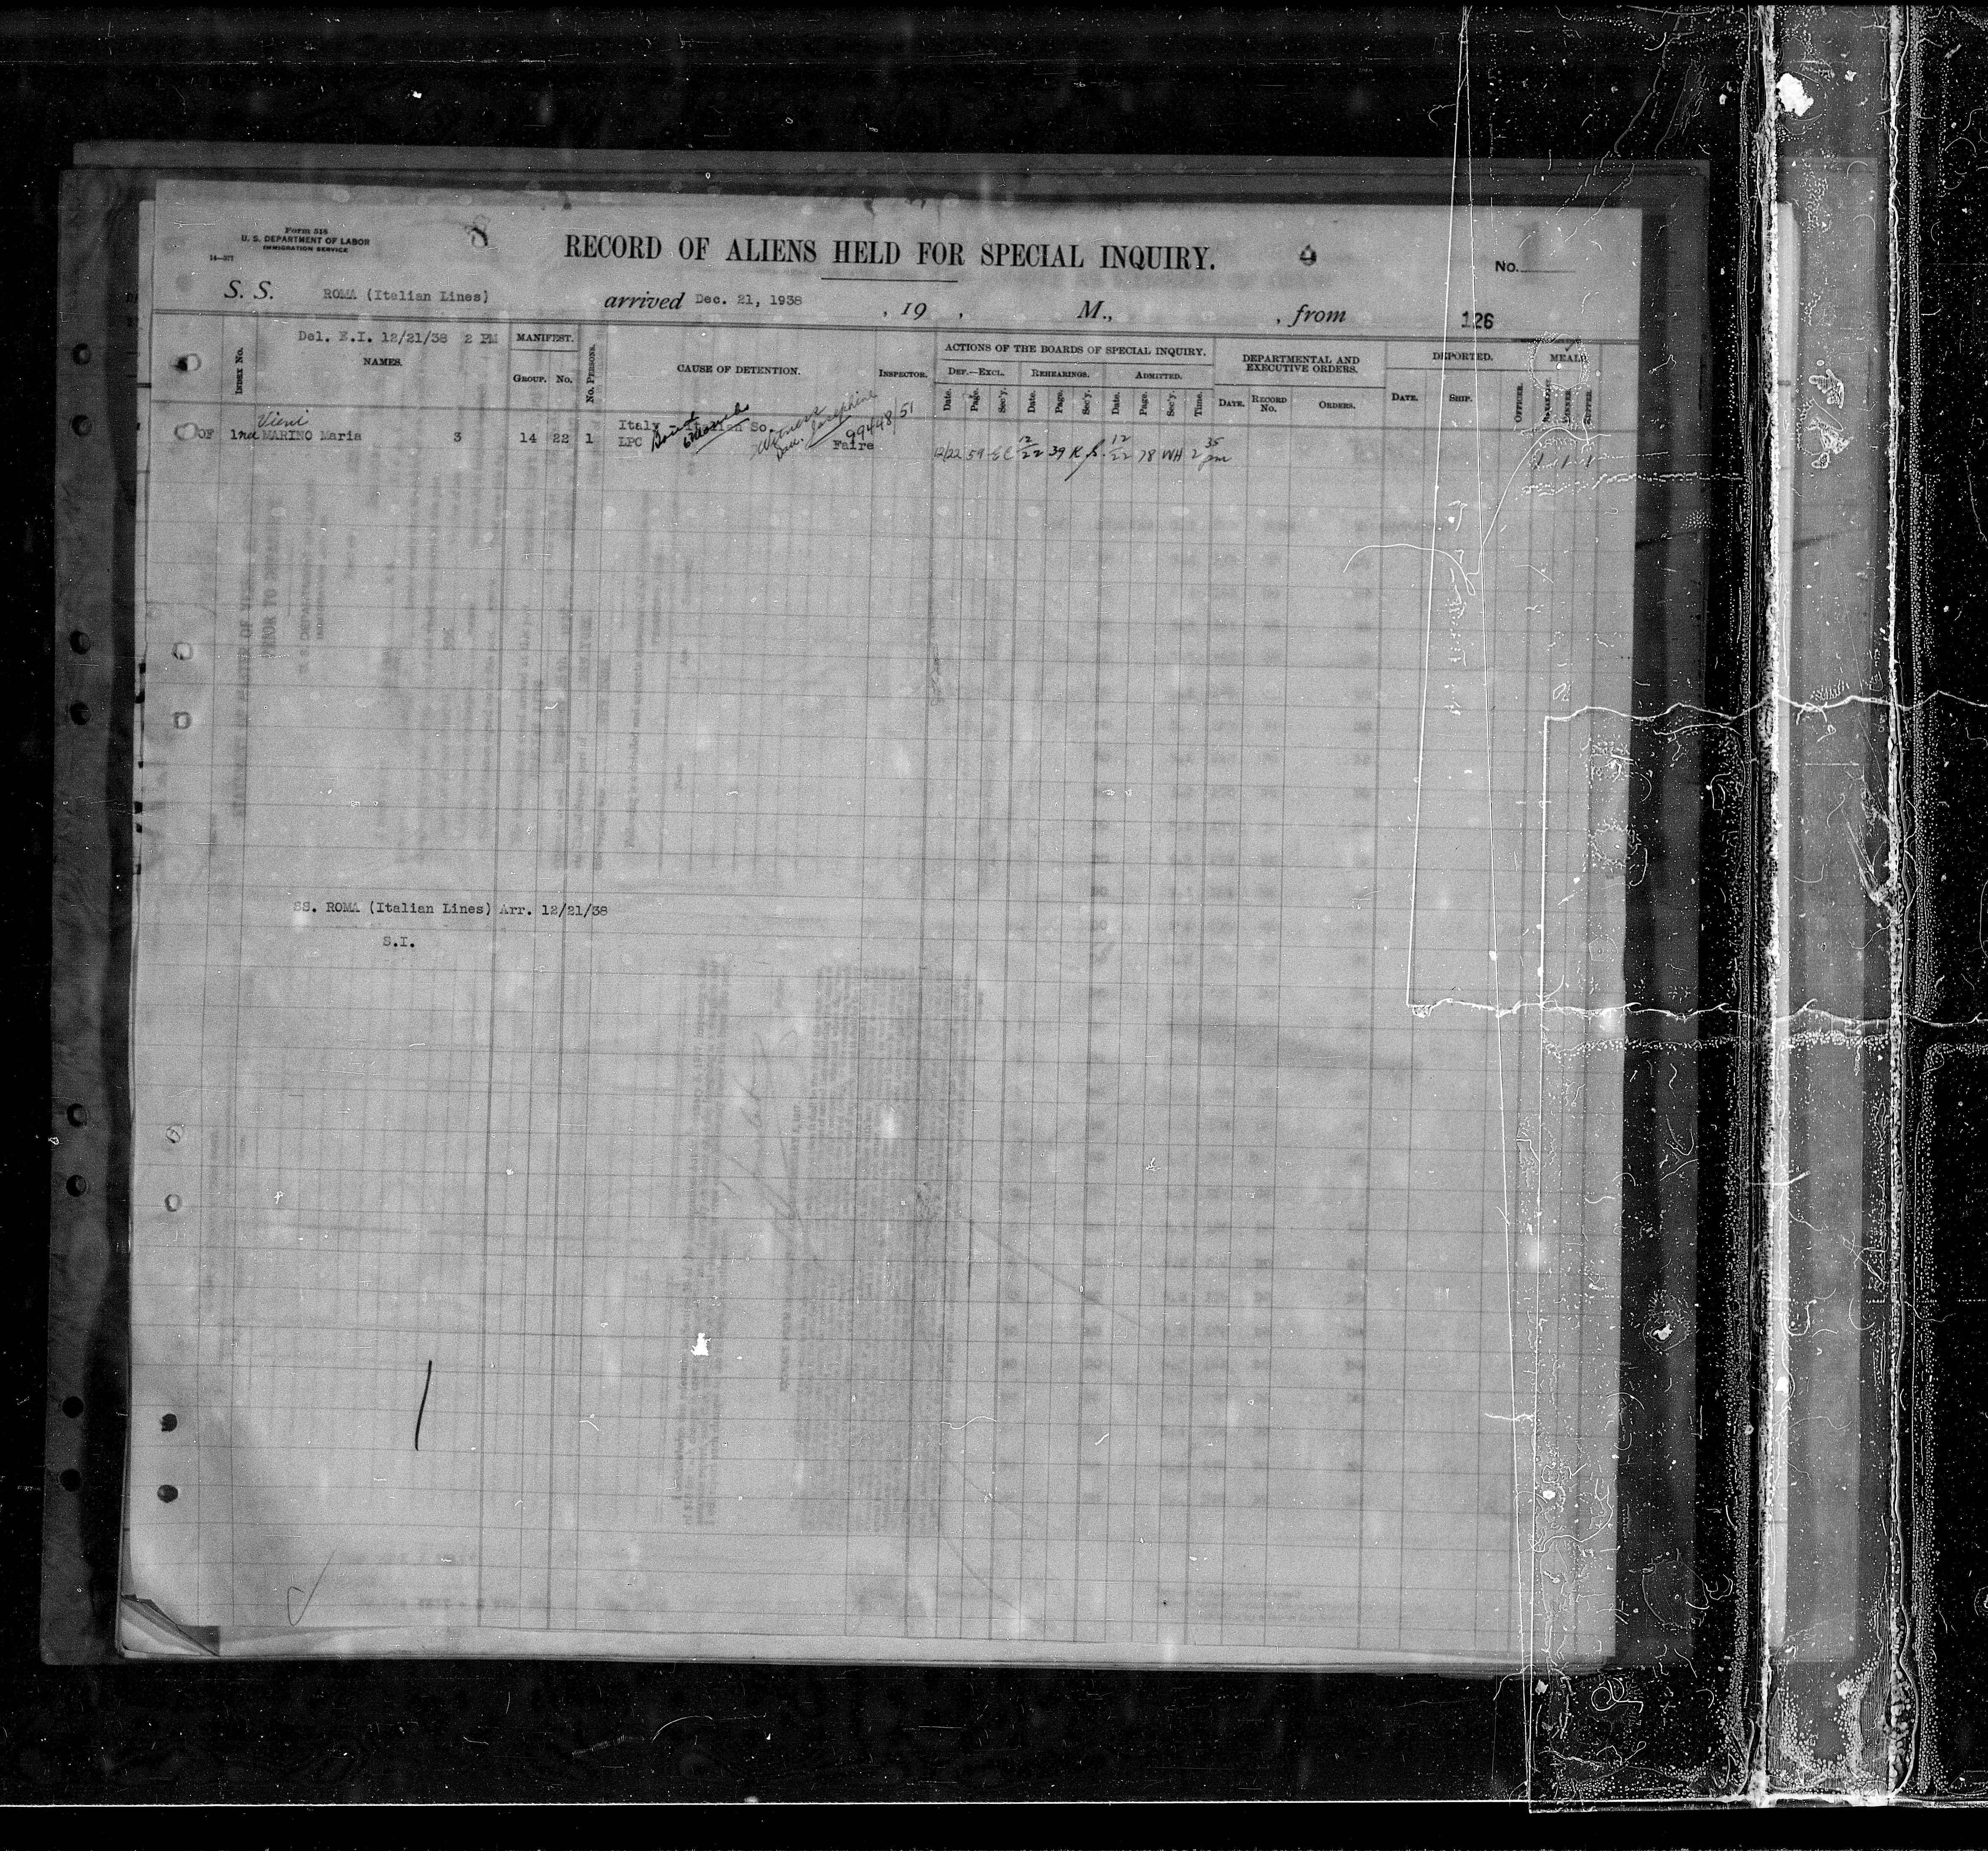 Form 518
U. S. DEPARTMENT OF LABOR
IMMIGRATION SERVICE
RECORD OF ALIENS HELD FOR SPECIAL INQUIRY.
No.
S. S. ROMA (Italian Lines) arrived Dec. 21, 1938 , 19 , M., , from 126
INDEX No.
Del. E.I. 12/21/38 2 PM
NAMES.
MANIFEST.
GROUP. No.
No. PERSONS.
CAUSE OF DETENTION.
INSPECTOR.
ACTIONS OF THE BOARDS OF SPECIAL INQUIRY.
DEF.—EXCL. REHEARINGS. ADMITTED.
Date. Page. Sec'y. Date. Page. Sec'y. Date. Page. Sec'y. Time.
DEPARTMENTAL AND
EXECUTIVE ORDERS.
DATE. RECORD No. ORDERS.
DEPORTED.
DATE. SHIP. OFFICER.
MEALS
BREAKFAST. DINNER. SUPPER.
Vieni
OF 1nd MARINO Maria 3 14 22 1
Italy - Italian So.
LPC
Josephine
99448/51
Faire
12/22 59 EC 12/22 39 12/22 78 WH 2 35 pm
1 1 1
SS. ROMA (Italian Lines) Arr. 12/21/38
S.I.